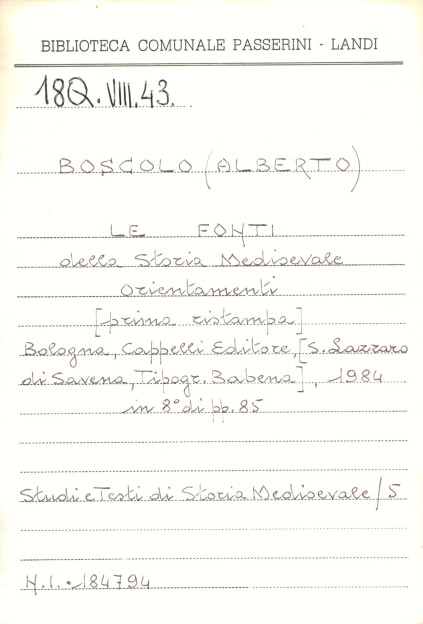 BIBLIOTECA COMUNALE PASSERINI - LANDI
18Q.VIII.43.
BOSCOLO (ALBERTO)
LE FONTI
della Storia Medioevale
Orientamenti
[prima ristampa]
Bologna, Cappelli Editore, [S. Lazzaro
di Savena, Tipogr. Babena], 1984
in 8° di pp. 85
Studi e Testi di Storia Medioevale / 5
N.I. 184794